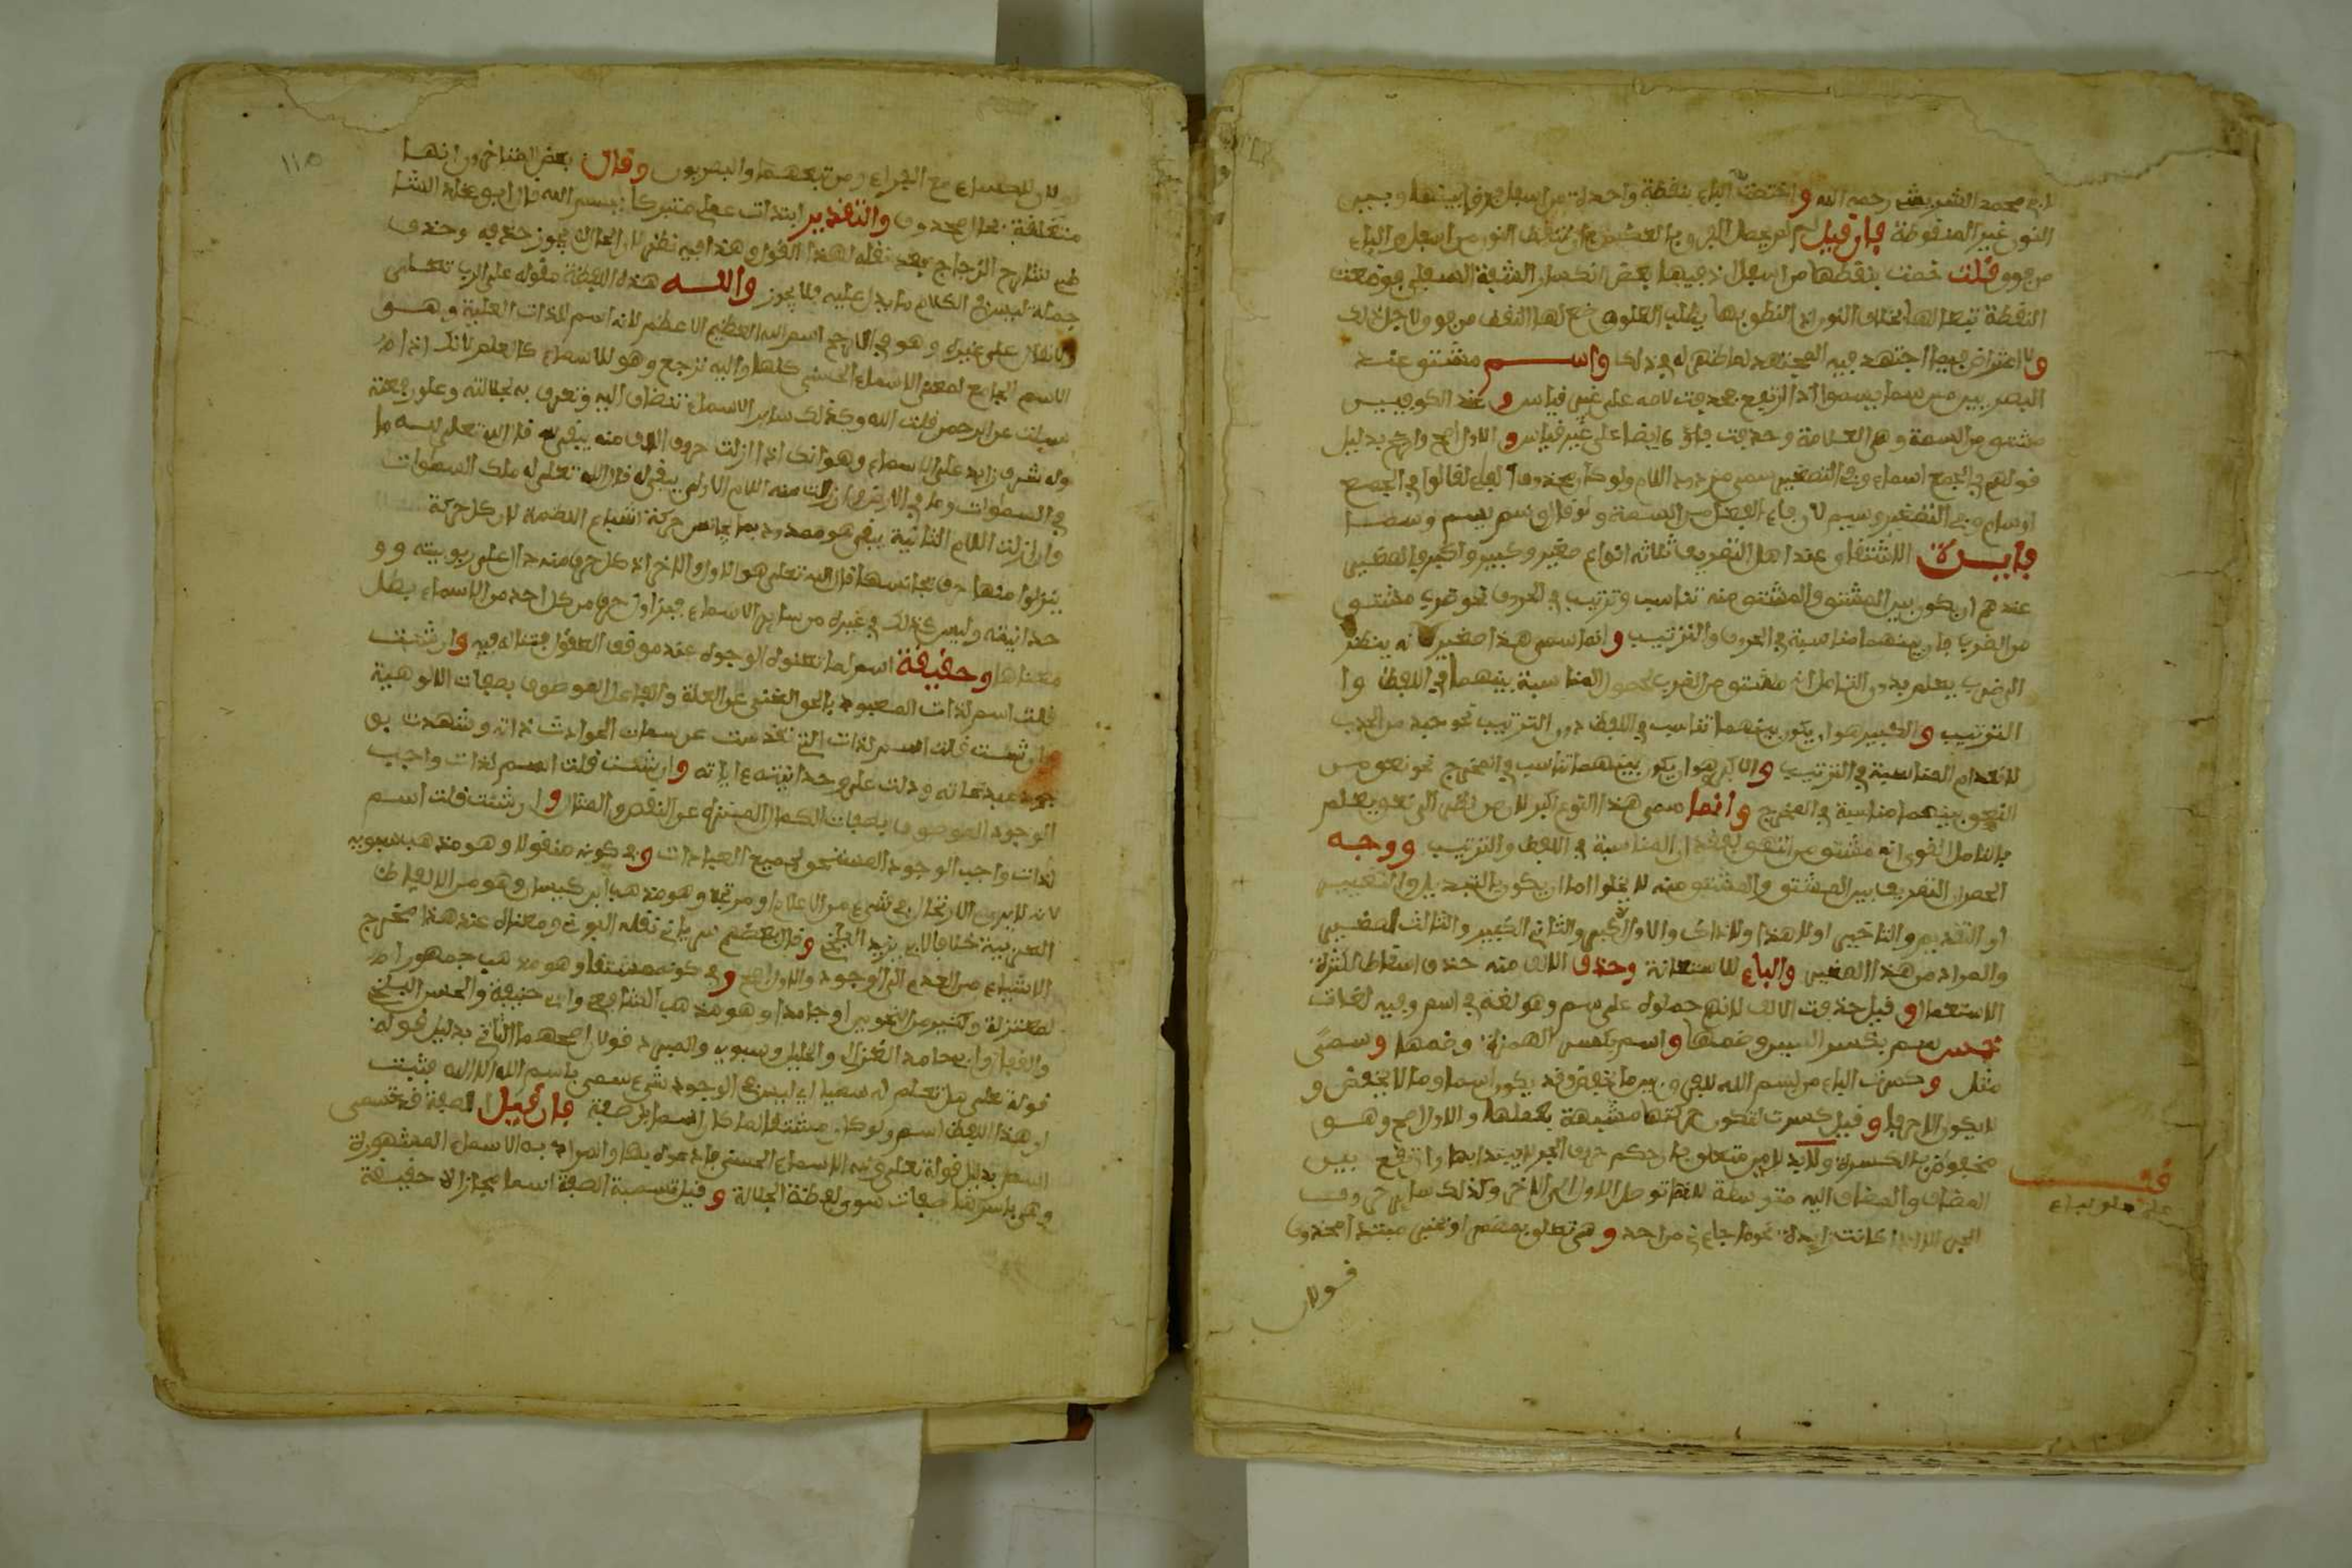 لابي محمد الشريشي رحمه الله واختصت الباء بنقطة واحدة من اسفل فرقا بينها وبين
النون غير المنقوطة فان قيل لم لم يجعل الفرق بالعكس نقط النون من اسفل والباء
من فوق قلت خصت بنقطها من اسفل اذ فيها بعض انكسار الشفة السفلى فوضعت
النقطة تبعا لها بخلاف النون اذ النطق بها يطلب العلو فوضع لها النقط من فوق ولاجل ذلك
ولا اعتراض فيما اجتهد فيه المجتهد لما ظهر له في ذلك واسم مشتق عند
البصريين من سما يسموا اذا ارتفع فحذفت لامه على غير قياس وعند الكوفيين
مشتق من السمة وهي العلامة وحذفت فاؤه ايضا على غير قياس والاول اصح وارجح بدليل
قولهم في الجمع اسماء وفي التصغير سمي برد اللام ولو كان محذوف الفاء لقالوا في الجمع
اوسام وفي التصغير وسيم لان فاء الفعل من السمة واو فقالوا وسم يسم وسما
فايدة الاشتقاق عند اهل التصريف ثلاثة انواع صغير وكبير واكبر فالصغير
عندهم ان يكون بين المشتق والمشتق منه تناسب وترتيب في الحروف نحو ضرب مشتق
من الضرب فان بينهما مناسبة في الحروف والترتيب وانما سمي هذا صغيرا لانه ينظر
الى ضرب يعلم بدون التامل انه مشتق من الضرب لحصول المناسبة بينهما في اللفظ وا
لترتيب والكبير هو ان يكون بينهما تناسب في اللفظ دون الترتيب نحو جبذ من الجذب
لانعدام المناسبة في الترتيب والاكبر هو ان يكون بينهما تناسب في المخرج نحو نعق من
النهق بينهما مناسبة في المخرج وانما سمي هذا النوع اكبر لان من نظر الى نعق يعلم
بالتامل القوي انه مشتق من النهق لفقدان المناسبة في اللفظ والترتيب ووجه
الحصر ان التصريف بين المشتق والمشتق منه لا يخلوا اما ان يكون بالتبديل والتغيير
او التقديم والتاخير او لا هذا ولا ذاك والاول الاكبر والثاني الكبير والثالث الصغير
والمراد من هذا الصغير والباء للاستعانة وحذف الالف منه حذف اسقاط لكثرة
الاستعمال وقيل حذفت الالف لانهم حملوه على سم وهو لغة في اسم وفيه لغات
خمس سم بكسر السين وضمها واسم بكسر الهمزة وضمها وسمى
مثل وكسرت الباء من بسم الله للفرق بين ما يخفض وقد يكون اسما وما لا يخفض و
لا يكون الا حرفا وقيل كسرت لتكون حركتها مشبهة بعملها والاول اصح وهو
مخفوض بالكسرة ولا بد لها من متعلق به اذ حكم حروف الجر لا يبتدا بها وان تقع بين
المضاف والمضاف اليه متوسطة لانها توصل الاول الى الاخر وكذلك ساير حروف
الجر الا اذا كانت زايدة نحو ما جاءني من احد وهي تتعلق بمضمر او بخبر مبتدا محذوف
قف
على متعلق الباء
قولان
١١٥
قولان للكساء مع الفراء ومن تبعهما والبصريون وقال بعض المتاخرين انها
متعلقة بحال محذوف والتقدير ابتدات عملي متبركا ببسم الله قال ابو عبد الله الشا
طبي شارح الزجاج بعد نقله لهذا القول وهذا فيه نظر لان الحال لا يجوز حذفه وحذف
جملة ليس في الكلام ما يدل عليه فلا يجوز والله هذه اللفظة مقولة على الرب تعالى
ولا تقال على غيره وهو في الارجح اسم الله العظيم الاعظم لانه اسم للذات العلية وهو
الاسم الجامع لمعنى الاسماء الحسنى كلها واليه ترجع وهو للاسماء كالعلم لانك اذا
سيلت عن الرحمن قلت الله وكذلك ساير الاسماء تنضاف اليه وتعرف به لجلالته وعلو رفعته
وله شرف زايد على الاسماء وهو انك اذا ازلت حروف الالف منه يبقى لله قال الله تعلى لله ما
في السموات وما في الارض وان ازلت منه اللام الاولى يبقى له قال الله تعلى له ملك السموات
وان ازلت اللام الثانية يبقى هو ممدود بما يجانس حركة اشباع الضمة لان كل حركة
يتولد منها حرف يجانسها قال الله تعلى هو الاول والاخر اذ كل حرف منه دال على ربوبيته وو
حدانيته وليس كذلك في غيره من ساير الاسماء فبزوال حرف من كل احد من الاسماء يبطل
معناها وحقيقة اسم لما تعنوا له الوجوه عند موقف العقول فتتاله فيه وان شئت
قلت اسم لذات المعبود بالحق الغني عن العلة والفاعل الموصوف بصفات الالوهية
وان شئت قلت اسم لذات التي تقدست عن سمات الحوادث ذاته وشهدت بو
جوده مبدعاته ودلت على وحدانيته اياته وان شئت قلت اسم لذات واجب
الوجود الموصوف بصفات الكمال المنزه عن النقص والمثال وان شئت قلت اسم
لذات واجب الوجود المستحق لجميع العبادات وفي كونه منقولا وهو مذهب سيبويه
لانه لا يرى الارتجال في شيء من الاعلام او مرتجلا وهو مذهب ابن كيسان وهو من الالفاظ
العربية خلافا لابي يزيد البلخي وقال بعضهم سرياني نقله البوني ومعناه عند هذا مخرج
الاشياء من العدم الى الوجود والاول اصح وفي كونه مشتقا وهو مذهب جمهور ا
لمعتزلة وكثير من النحويين او جامدا وهو مذهب الشافعي وابي حنيفة والحسن البلخي
والقفال وابي حامد الغزالي والخليل وسيبويه والمبرد قولان اصحهما الثاني بدليل قوله
قوله تعلى هل تعلم له سميا اي ليس في الوجود شيء سمي باسم الله الا الله فثبت
ان هذا اللفظ اسم ولو كان مشتقا لما كان اسما بل صفة فان قيل الصفة قد تسمى
اسما بدليل قوله تعلى ولله الاسماء الحسنى فادعوه بها والمراد به الاسماء المشهورة
وهي باسرها صفات سوى لفظة الجلالة وقيل تسمية الصفة اسما مجازا لا حقيقة